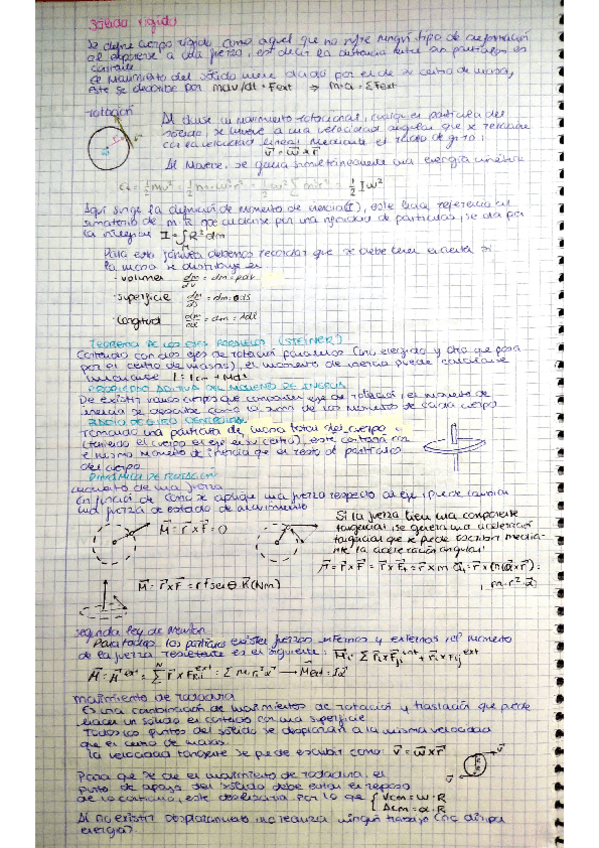 Sólido rígido
Se define cuerpo rígido como aquel que no sufre ningún tipo de deformación
al exponerse a una fuerza, es decir la distancia entre sus partículas es
constante
El movimiento del sólido viene dado por el de su centro de masa,
este se describe por mdv/dt = Fext ⇒ m·a = ΣFext
rotación
Al darse un movimiento rotacional, cualquier partícula del
sólido se mueve a una velocidad angular que se relaciona
con la velocidad lineal mediante el radio de giro:
v = w x r
Al moverse, se gana simultáneamente una energía cinética
= ½mv² = ½mw²r² = ½w² Σ m·r² = ½ I w²
Aquí surge la definición de momento de inercia (I), este hace referencia al
sumatorio de m·r², que al darse por una de partículas, se da por
la integral I = ∫R² dm
Para esta fórmula debemos recordar que se debe tener en cuenta si
la masa se distribuye en
· volumen dm/dv = dm = ρdv
· superficie dm/ds = dm = σds
· longitud dm/dl = dm = λdl
TEOREMA DE LOS EJES PARALELOS (STEINER)
Contando con dos ejes de rotación paralelos (uno elegido y otro que pasa
por el centro de masas), el momento de inercia puede calcularse
I = Icm + Md²
PROPIEDAD ADITIVA DEL MOMENTO DE INERCIA
De existir varios cuerpos que comparten eje de rotación, el momento de
inercia se describe como la suma de los momentos de cada cuerpo
RADIO DE GIRO
Tomando una partícula de masa total del cuerpo
(teniendo el cuerpo el eje en su centro), este contará con
el mismo momento de inercia que el resto de partículas
del cuerpo
DINÁMICA DE ROTACIÓN
momento de una fuerza
En función de como se aplique una fuerza respecto al eje, puede cambiar
una fuerza de estado de movimiento
M = r x F = 0
Si la fuerza tiene una componente
tangencial, se generará una aceleración
tangencial que se puede escribir media-
nte la aceleración angular:
M = r x F = r x Ft = r x m at = r x (m α r) =
m·r²·α
M = r x F = r F sen θ k (Nm)
segunda ley de Newton
Para todas las partículas existen fuerzas internas y externas, el momento
de la fuerza resultante es el siguiente: Mi = Σ ri x Fji int + ri x Fij ext
M = M ext = Σ r x F ext = Σ m·r²α → Mext = Iα
movimiento de rodadura
Es una combinación de movimientos de rotación y traslación que puede
hacer un sólido en contacto con una superficie
Todos los puntos del sólido se desplazan a la misma velocidad
que el centro de masas
La velocidad tangente se puede escribir como: v = w x r
Para que se de el movimiento de rodadura, el
punto de apoyo del sólido debe estar en reposo
de lo contrario, este deslizaría por lo que { Vcm = w·R
acm = α·R
Al no existir desplazamiento no realiza ningún trabajo (no disipa
energía).